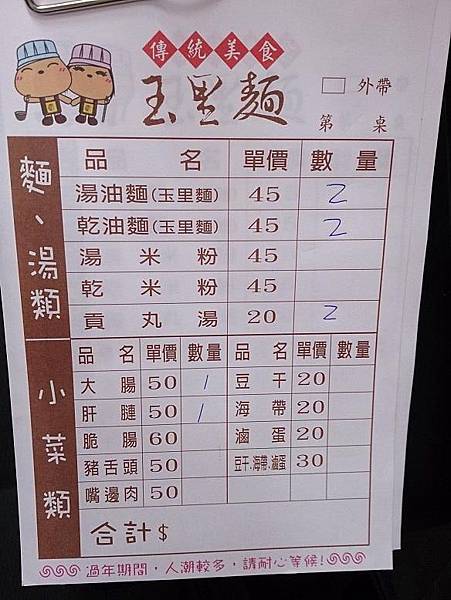 傳統美食
玉里麵
外帶
第 桌
麵、湯類
品名 單價 數量
湯油麵(玉里麵) 45 2
乾油麵(玉里麵) 45 2
湯米粉 45
乾米粉 45
貢丸湯 20 2
小菜類
品名 單價 數量 品名 單價 數量
大腸 50 1 豆干 20
肝腱 50 1 海帶 20
脆腸 60 滷蛋 20
豬舌頭 50 豆干.海帶.滷蛋 30
嘴邊肉 50
合計$
過年期間，人潮較多，請耐心等候!